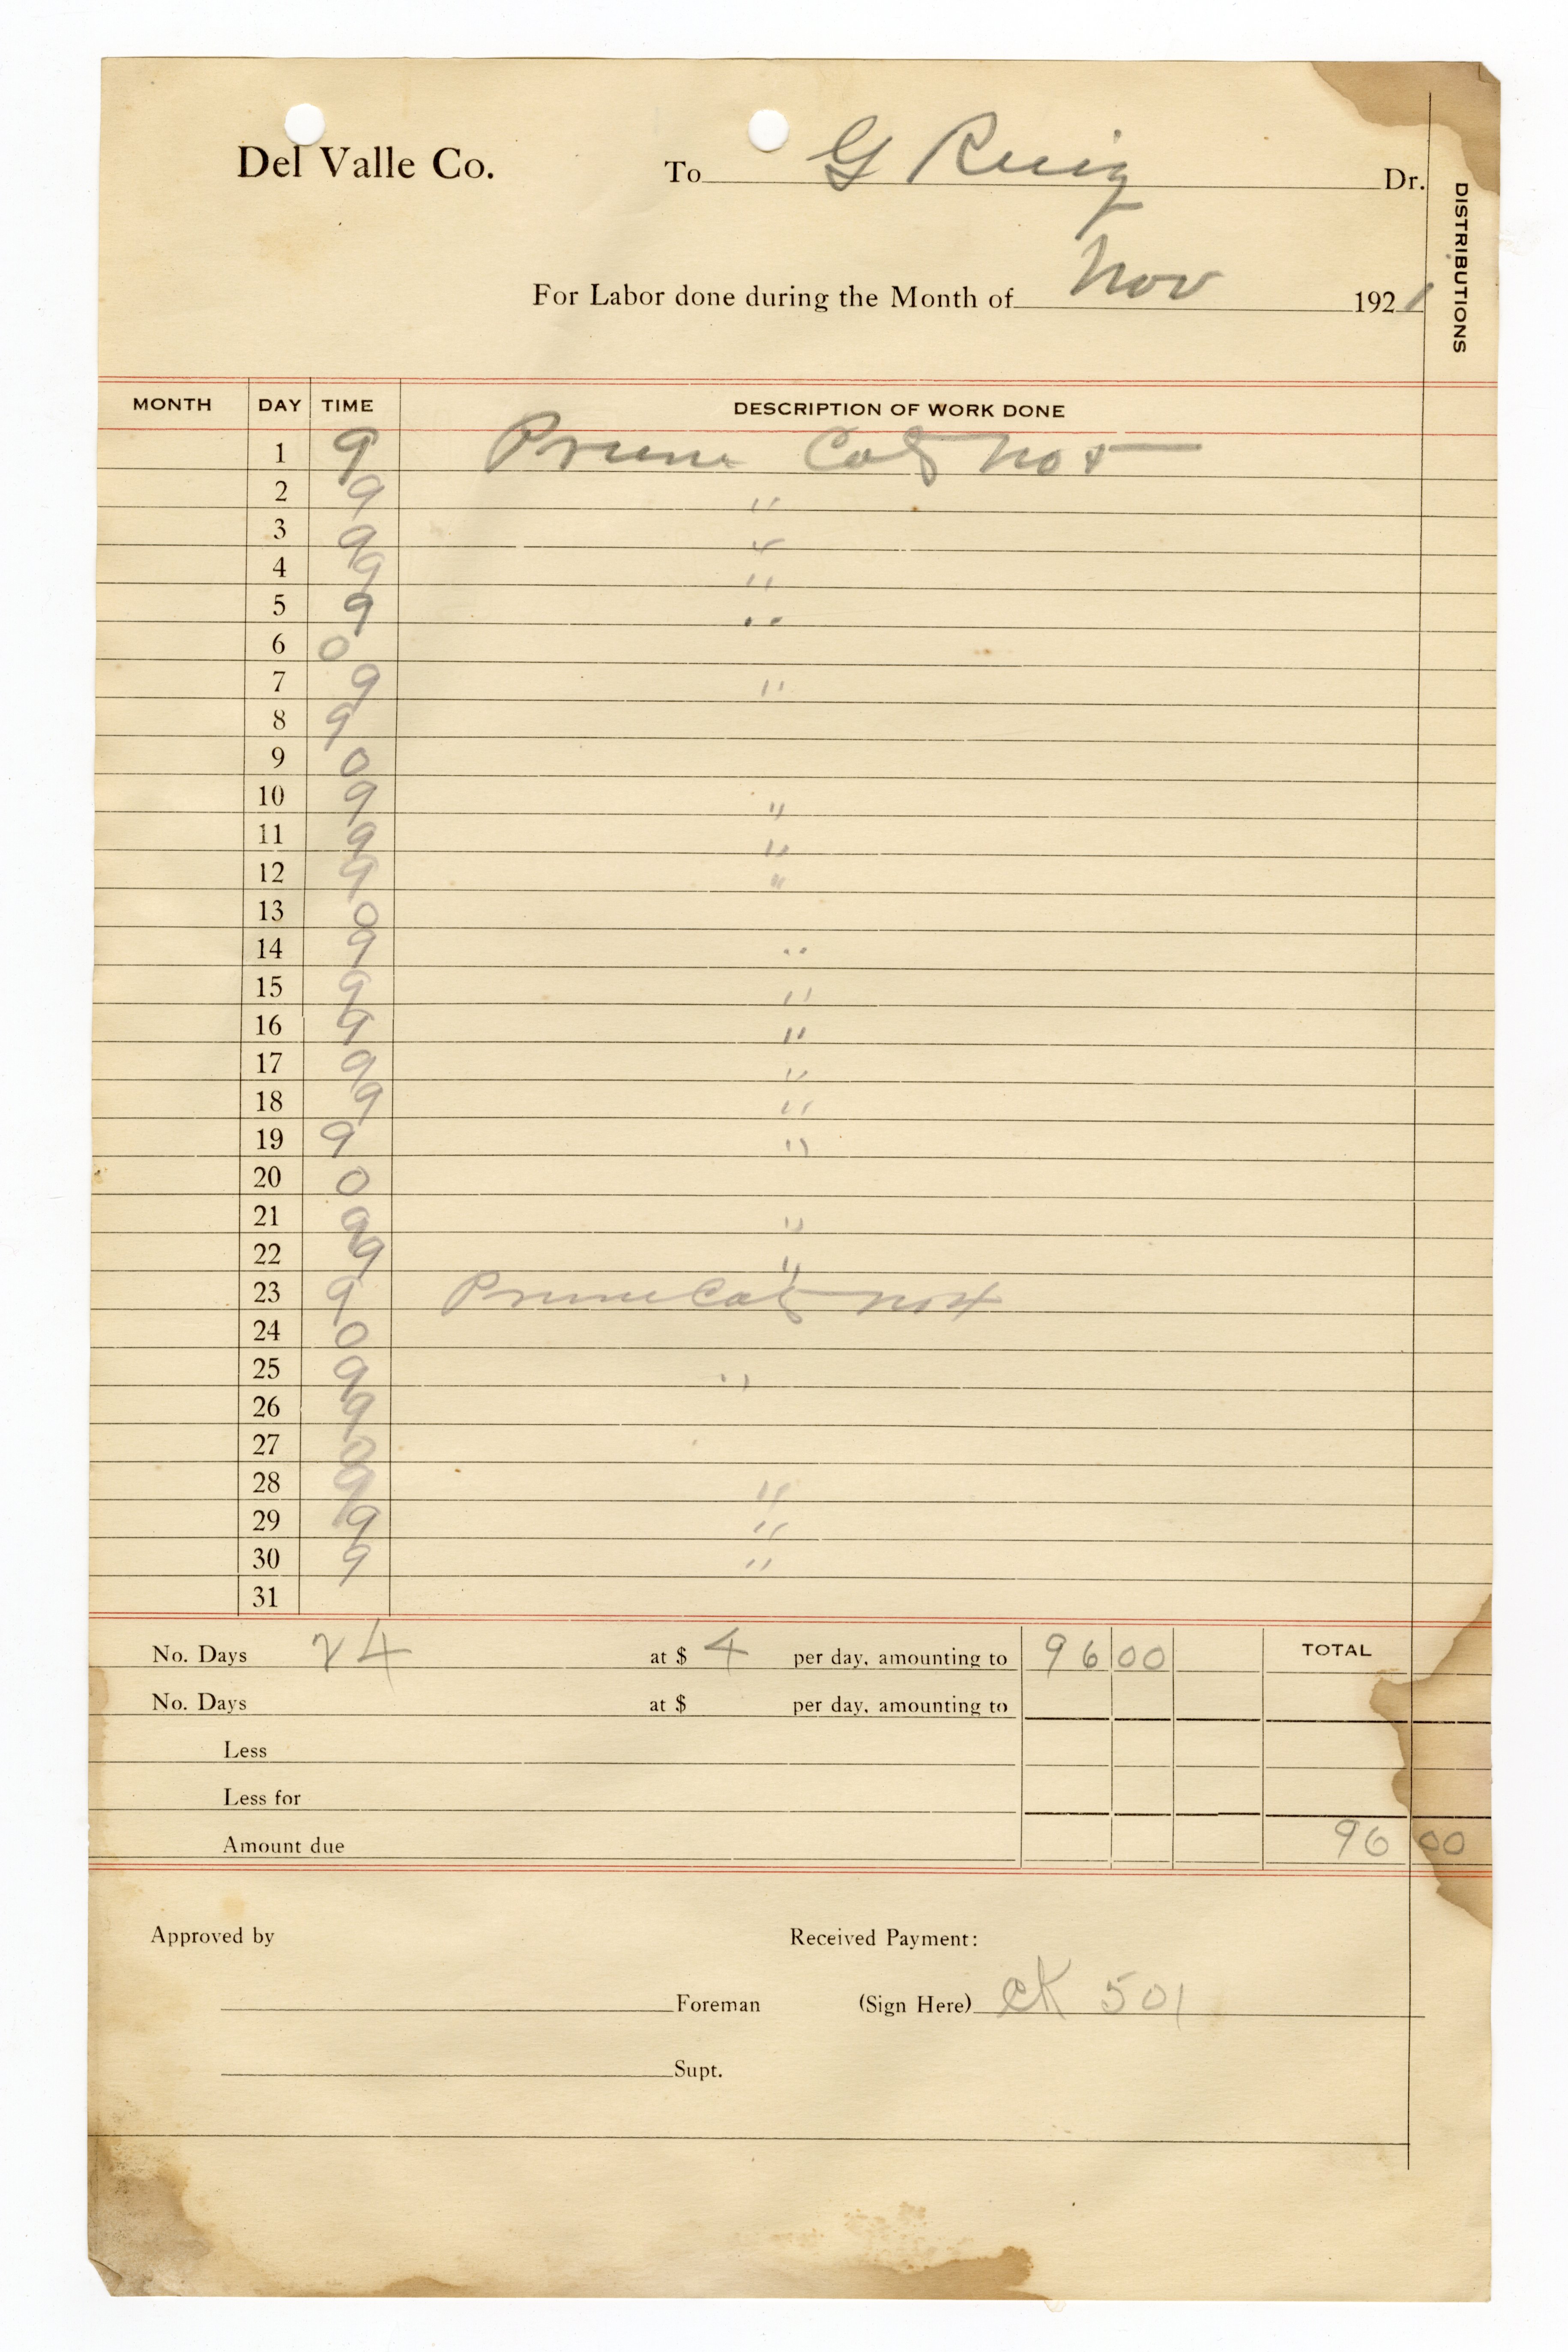 Del Valle Co. To G Ruiz Dr.
DISTRIBUTIONS
For Labor done during the Month of Nov 1921
MONTH DAY TIME DESCRIPTION OF WORK DONE
1 9 Prune Cal No
2 9 "
3 9 "
4 9 "
5 9 "
6 0
7 9 "
8 9
9 0
10 9 "
11 9 "
12 9 "
13 0
14 9 "
15 9 "
16 9 "
17 9 "
18 9 "
19 9 "
20 0
21 9 "
22 9 "
23 9 Prune Cal No 4
24 0
25 9 "
26 9
27 0
28 9 "
29 9 "
30 9 "
31
No. Days 24 at $ 4 per day, amounting to 96 00 TOTAL
No. Days at $ per day, amounting to
Less
Less for
Amount due 96 00
Approved by Received Payment:
Foreman (Sign Here) CK 501
Supt.